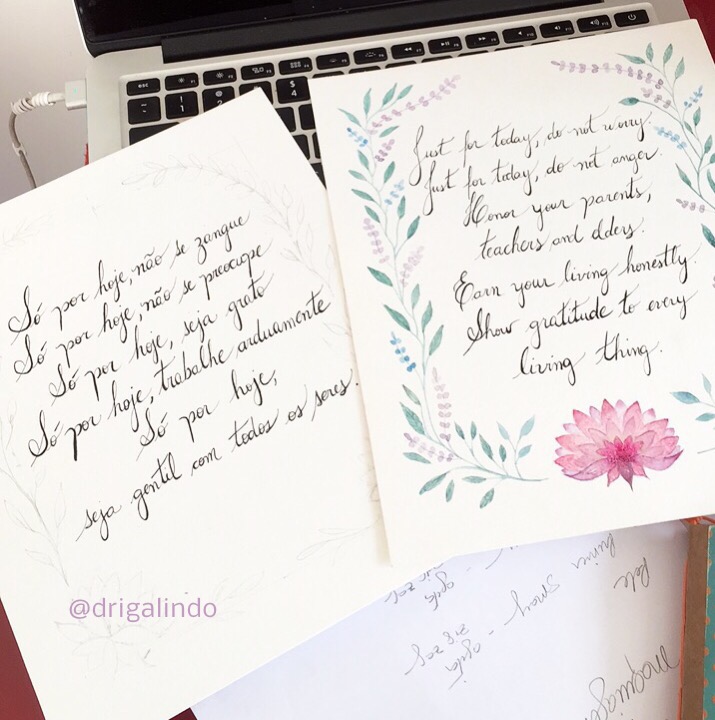 Só por hoje, não se zangue
Só por hoje, não se preocupe
Só por hoje, seja grato
Só por hoje, trabalhe arduamente
Só por hoje,
seja gentil com todos os seres.
Just for today, do not worry.
Just for today, do not anger.
Honor your parents,
teachers and elders.
Earn your living honestly.
Show gratitude to every
living thing.
@drigalindo
esc